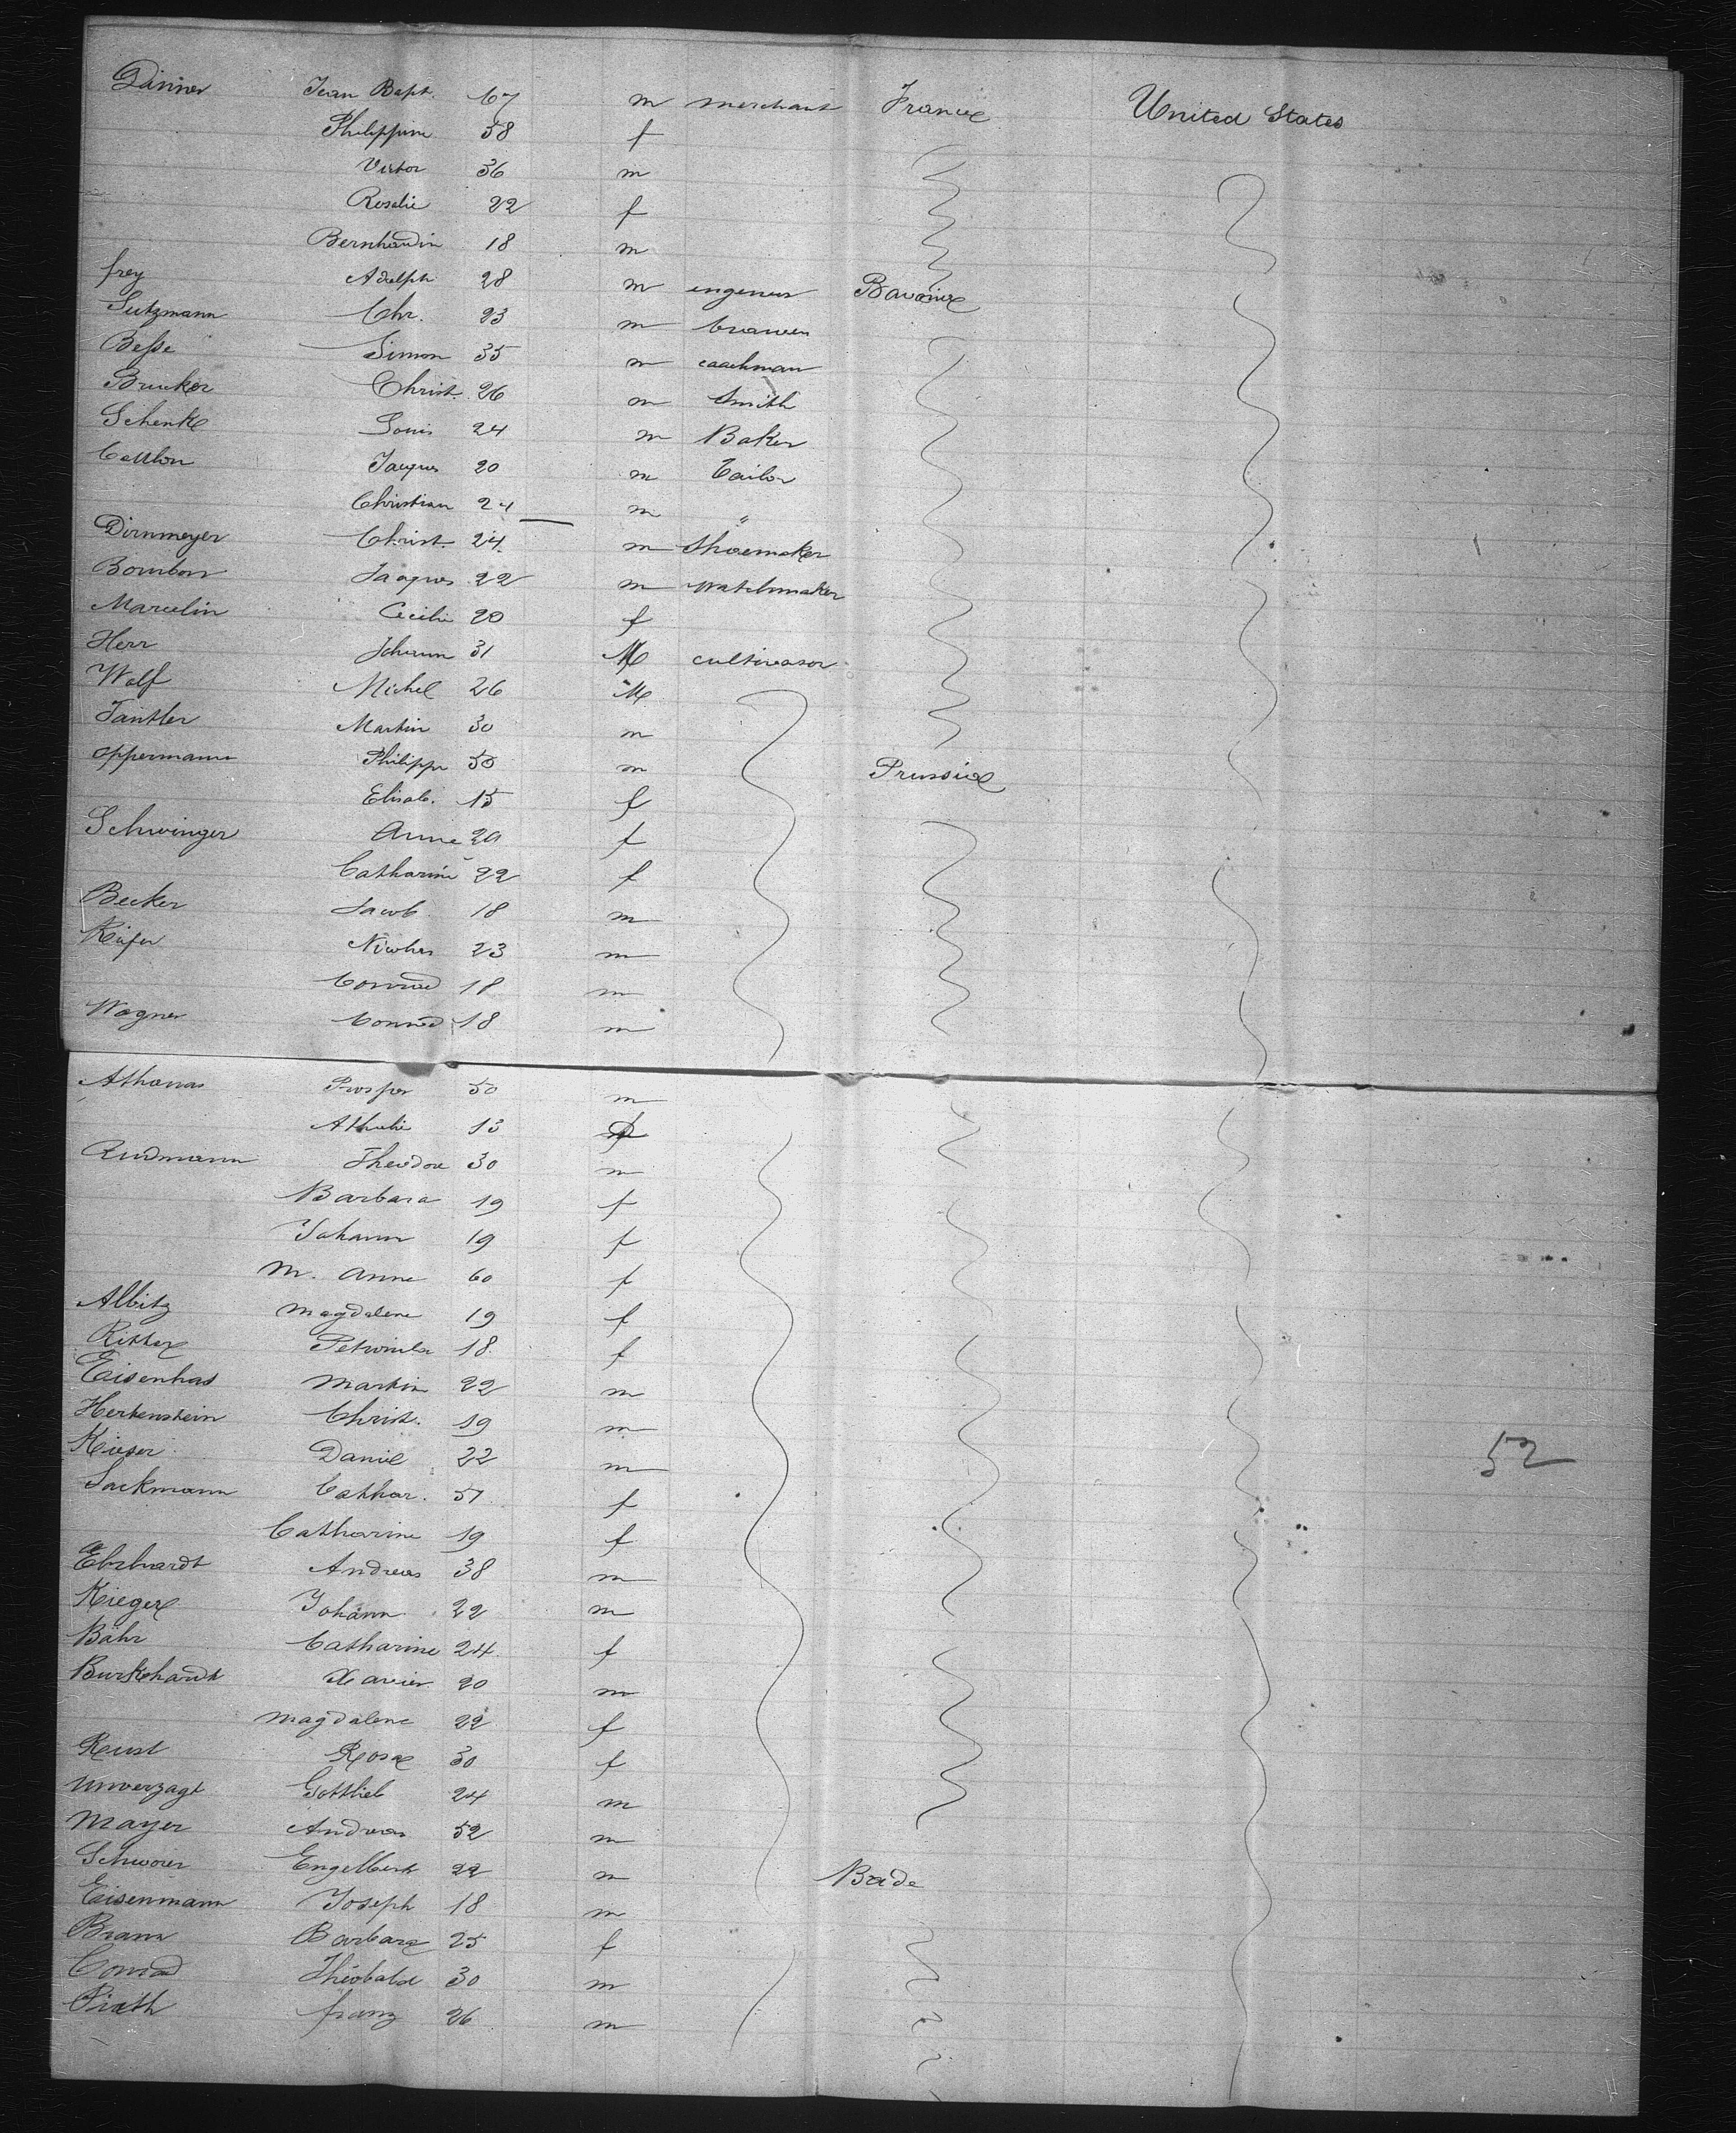 Dinner Jean Bapt. 67 m merchant France United States
Philippine 58 f
Victor 36 m
Rosalie 22 f
Bernhardin 18 m
frey Adolph 28 m engeneer Bavaria
Sutzmann Chr. 23 m brawer
Beße Simon 35 m coachman
Brucker Christ. 26 m Smith
Schenk Louis 24 m Baker
Jacques 20 m Tailor
Christian 24 m "
Dirnmeyer Christ. 24 m Shoemaker
Bourbon Jacques 22 m watchmaker
Marcelin Cecilie 20 f
Herr Johann 31 M cultivator
Wolf Michel 26 M
Martin 30 m
Oppermann Philippe 50 m Prussia
Elisab. 15 f
Schwinger Anne 20 f
Catharine 22 f
Becker Jacob 18 m
Kiefer Nicolas 23 m
Conrad 18 m
Wagner Conrad 18 m
Athanas Prosper 50 m
Athalie 13 f
Rudmann Theodore 30 m
Barbara 19 f
Johann 19 f
M. Anne 60 f
Albitz Magdalene 19 f
Ritter Petronila 18 f
Eisenhas Martin 22 m
Hertenstein Christ. 19 m
Kieser Daniel 22 m 52
Sackmann Cathar. 51 f
Catharine 19 f
Eberhardt Andreas 38 m
Kieger Johann 22 m
Bähr Catharine 24 f
Burkhardt Xavier 20 m
Magdalene 22 f
Rust Rosa 30 f
Unverzagt Gottlieb 24 m
Mayer Andreas 52 m
Schworer Engelbert 22 m Bade
Eisenmann Joseph 18 m
Braun Barbara 25 f
Conrad Théobald 30 m
franz 26 m